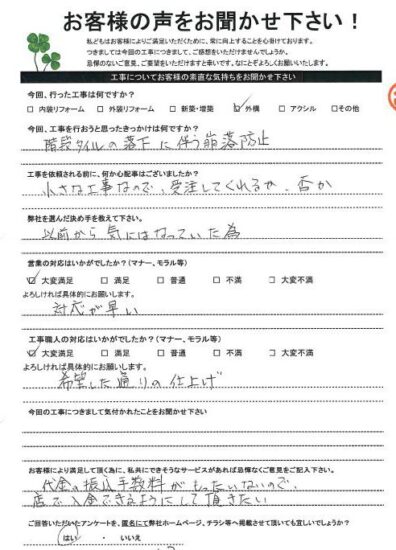 お客様の声をお聞かせ下さい！
私どもはお客様によりご満足いただくために、常に向上することを心掛けております。
つきましては今回の工事につきまして、ご感想をいただけませんでしょうか。
忌憚のないご意見、ご要望をいただけますと幸いです。なにとぞよろしくお願いいたします。
工事についてお客様の素直な気持ちをお聞かせ下さい
今回、行った工事は何ですか？
□ 内装リフォーム □ 外装リフォーム □ 新築・増築 ☑ 外構 □ アクシル □その他
今回、工事を行おうと思ったきっかけは何ですか？
階段タイルの落下に伴う崩落防止
工事を依頼される前に、何か心配事はございましたか？
小さな工事なので、受注してくれるか、否か
弊社を選んだ決め手を教えて下さい。
以前から気にはなっていた為
営業の対応はいかがでしたか？（マナー、モラル等）
☑ 大変満足 □ 満足 □ 普通 □ 不満 □ 大変不満
よろしければ具体的にお願いします。
対応が早い
工事職人の対応はいかがでしたか？（マナー、モラル等）
☑ 大変満足 □ 満足 □ 普通 □ 不満 □ 大変不満
よろしければ具体的にお願いします。
希望した通りの仕上げ
今回の工事につきまして気付かれたことをお聞かせ下さい
お客様により満足して頂く為に、私共にできそうなサービスがあれば忌憚なくご意見をご記入下さい。
代金の振込手数料がもったいないので、
店で入金できるようにして頂きたい
ご回答いただいたアンケートを、匿名にて弊社ホームページ、チラシ等へ掲載させて頂いても宜しいでしょうか？
はい ・ いいえ